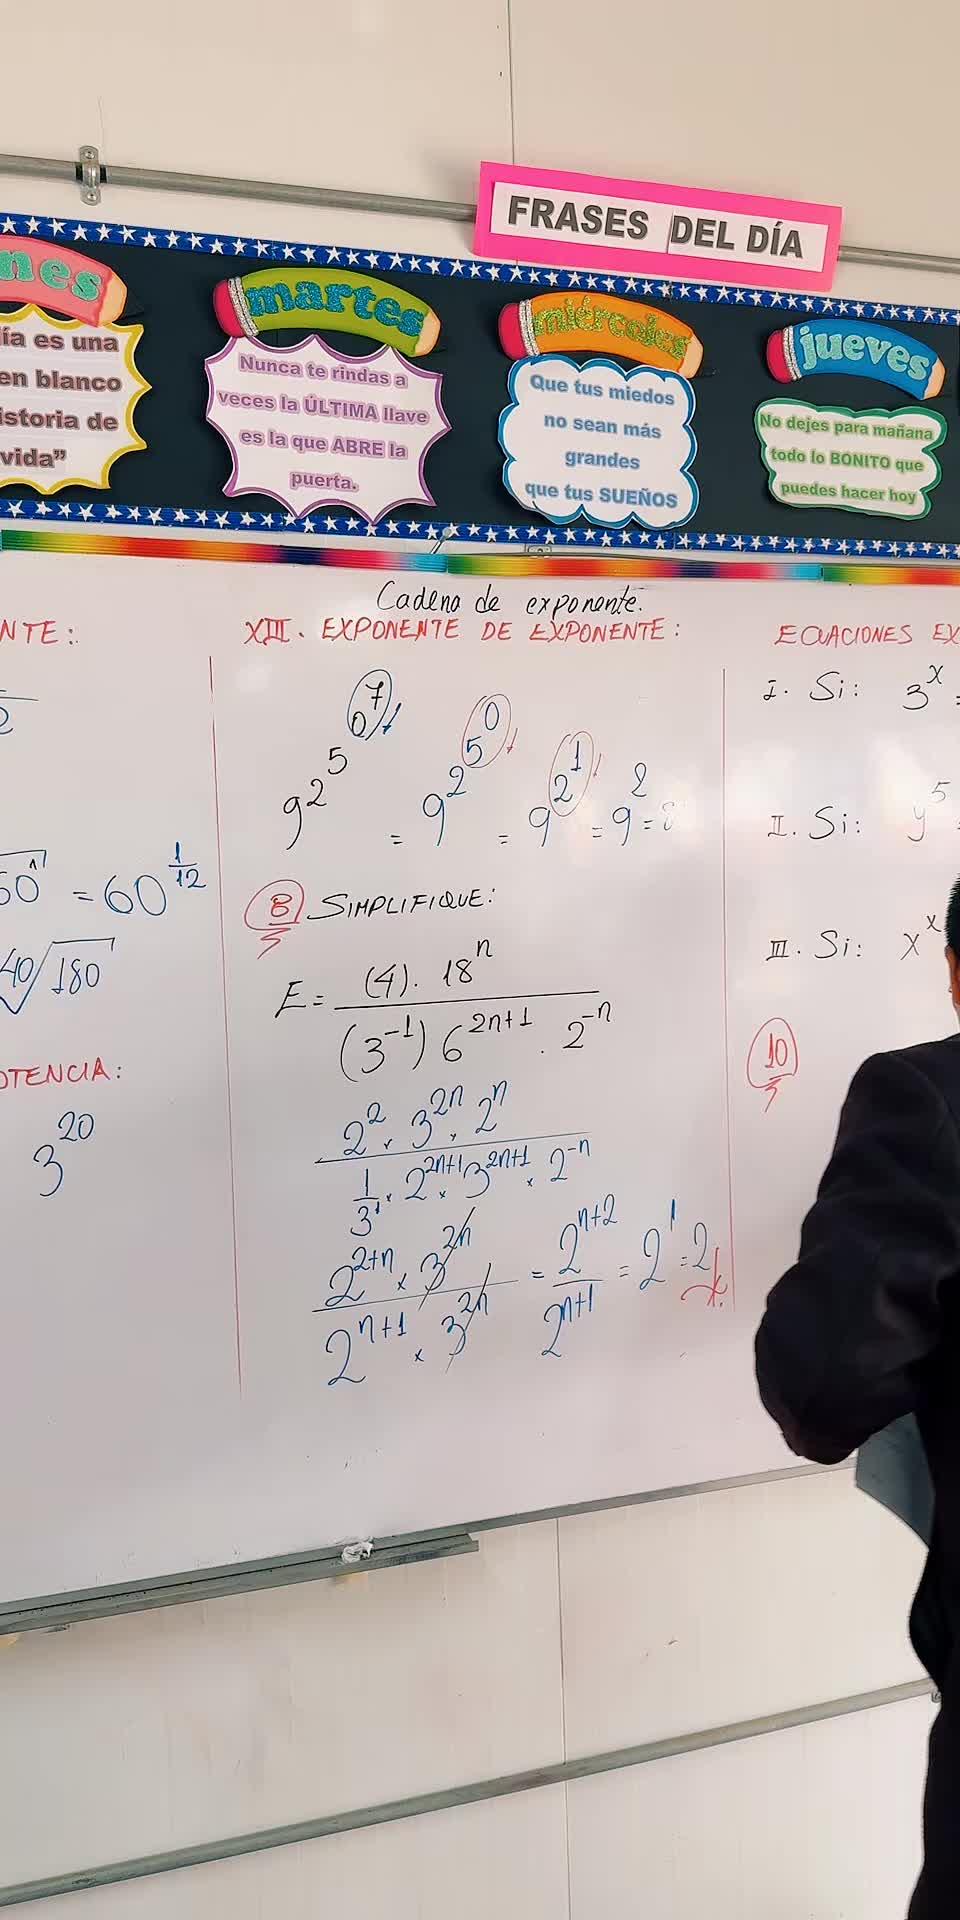 FRASES DEL DÍA
nes
ía es una
en blanco
istoria de
vida”
martes
Nunca te rindas a
veces la ÚLTIMA llave
es la que ABRE la
puerta.
miércoles
Que tus miedos
no sean más
grandes
que tus SUEÑOS
jueves
No dejes para mañana
todo lo BONITO que
puedes hacer hoy
NTE:
2
60^1 = 60^(1/12)
40√180
OTENCIA:
3^20
Cadena de exponente.
XIII. EXPONENTE DE EXPONENTE:
9^2^5^0^7 = 9^2^5^0 = 9^2^1 = 9^2 = 8
8 SIMPLIFIQUE:
E = (4). 18^n / (3^-1) 6^(2n+1) . 2^-n
2^2 . 3^2n . 2^n / 1/3^1 . 2^(2n+1) × 3^(2n+1) . 2^-n
2^(2+n) × 3^2n / 2^(n+1) × 3^2n = 2^(n+2) / 2^(n+1) = 2^1 = 2
ECUACIONES EX
I. Si: 3^x =
II. Si: y^5 =
III. Si: x^x
10